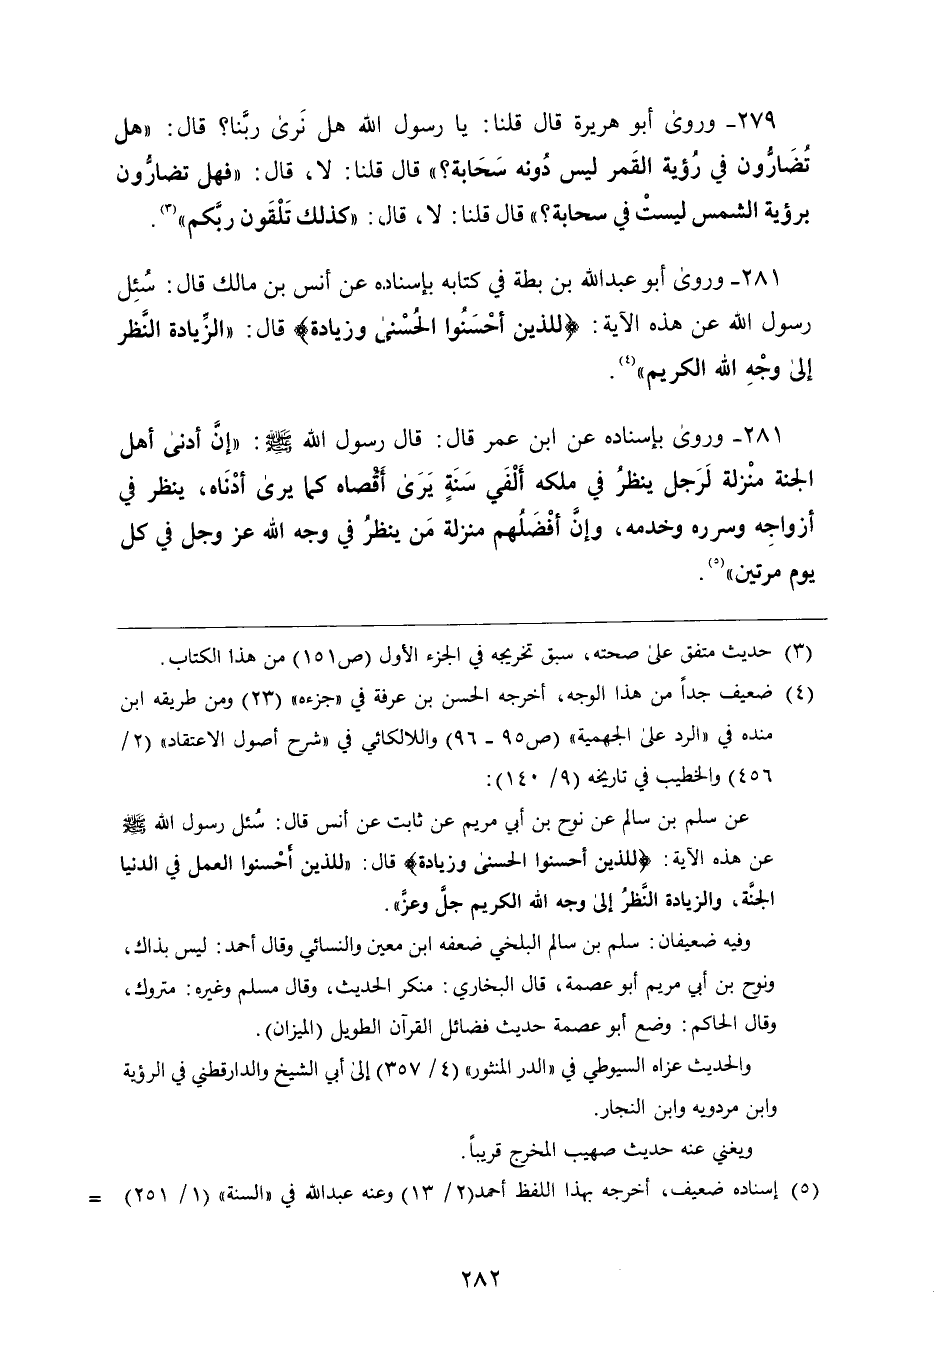 ٢٧٩ـ وروىٰ أبو هريرة قال قلنا: يا رسول الله هل نَرىٰ ربَّنا؟ قال: «هل
تُضَارُّون في رُؤية القَمر ليس دُونه سَحَابة؟» قال قلنا: لا، قال: «فهل تضارُّون
برؤية الشمس ليستْ في سحابة؟» قال قلنا: لا، قال: «كذلك تَلْقَون ربَّكم»(٣).
٢٨١ـ وروىٰ أبو عبدالله بن بطة في كتابه بإسناده عن أنس بن مالك قال: سُئِل
رسول الله عن هذه الآية: ﴿للذين أحْسَنُوا الحُسْنىٰ وزيادة﴾ قال: «الزِّيادة النَّظر
إلىٰ وجْهِ الله الكريم»(٤).
٢٨١ـ وروىٰ بإسناده عن ابن عمر قال: قال رسول الله ﷺ: «إنَّ أدنىٰ أهل
الجنة منْزلة لَرَجل ينظرُ في ملكه أَلْفَي سَنَةٍ يَرَىٰ أَقْصاه كما يرىٰ أدْنَاه، ينظر في
أزواجِه وسرره وخدمه، وإنَّ أفْضَلُهم منزلة مَن ينظرُ في وجه الله عز وجل في كل
يوم مرتين»(٥).
(٣) حديث متفق علىٰ صحته، سبق تخريجه في الجزء الأول (ص١٥١) من هذا الكتاب.
(٤) ضعيف جداً من هذا الوجه، أخرجه الحسن بن عرفة في «جزءه» (٢٣) ومن طريقه ابن
منده في «الرد علىٰ الجهمية» (ص٩٥ ـ ٩٦) واللالكائي في «شرح أصول الاعتقاد» (٢/
٤٥٦) والخطيب في تاريخه (٩/ ١٤٠):
عن سلم بن سالم عن نوح بن أبي مريم عن ثابت عن أنس قال: سُئل رسول الله ﷺ
عن هذه الآية: ﴿للذين أحسنوا الحسنىٰ وزيادة﴾ قال: «للذين أَحْسنوا العمل في الدنيا
الجنَّة، والزيادة النَّظرُ إلىٰ وجه الله الكريم جلَّ وعزَّ».
وفيه ضعيفان: سلم بن سالم البلخي ضعفه ابن معين والنسائي وقال أحمد: ليس بذاك،
ونوح بن أبي مريم أبو عصمة، قال البخاري: منكر الحديث، وقال مسلم وغيره: متروك،
وقال الحاكم: وضع أبو عصمة حديث فضائل القرآن الطويل (الميزان).
والحديث عزاه السيوطي في «الدر المنثور» (٤/ ٣٥٧) إلىٰ أبي الشيخ والدارقطني في الرؤية
وابن مردويه وابن النجار.
ويغني عنه حديث صهيب المخرج قريباً.
(٥) إسناده ضعيف، أخرجه بهذا اللفظ أحمد(٢/ ١٣) وعنه عبدالله في «السنة» (١/ ٢٥١) =
٢٨٢